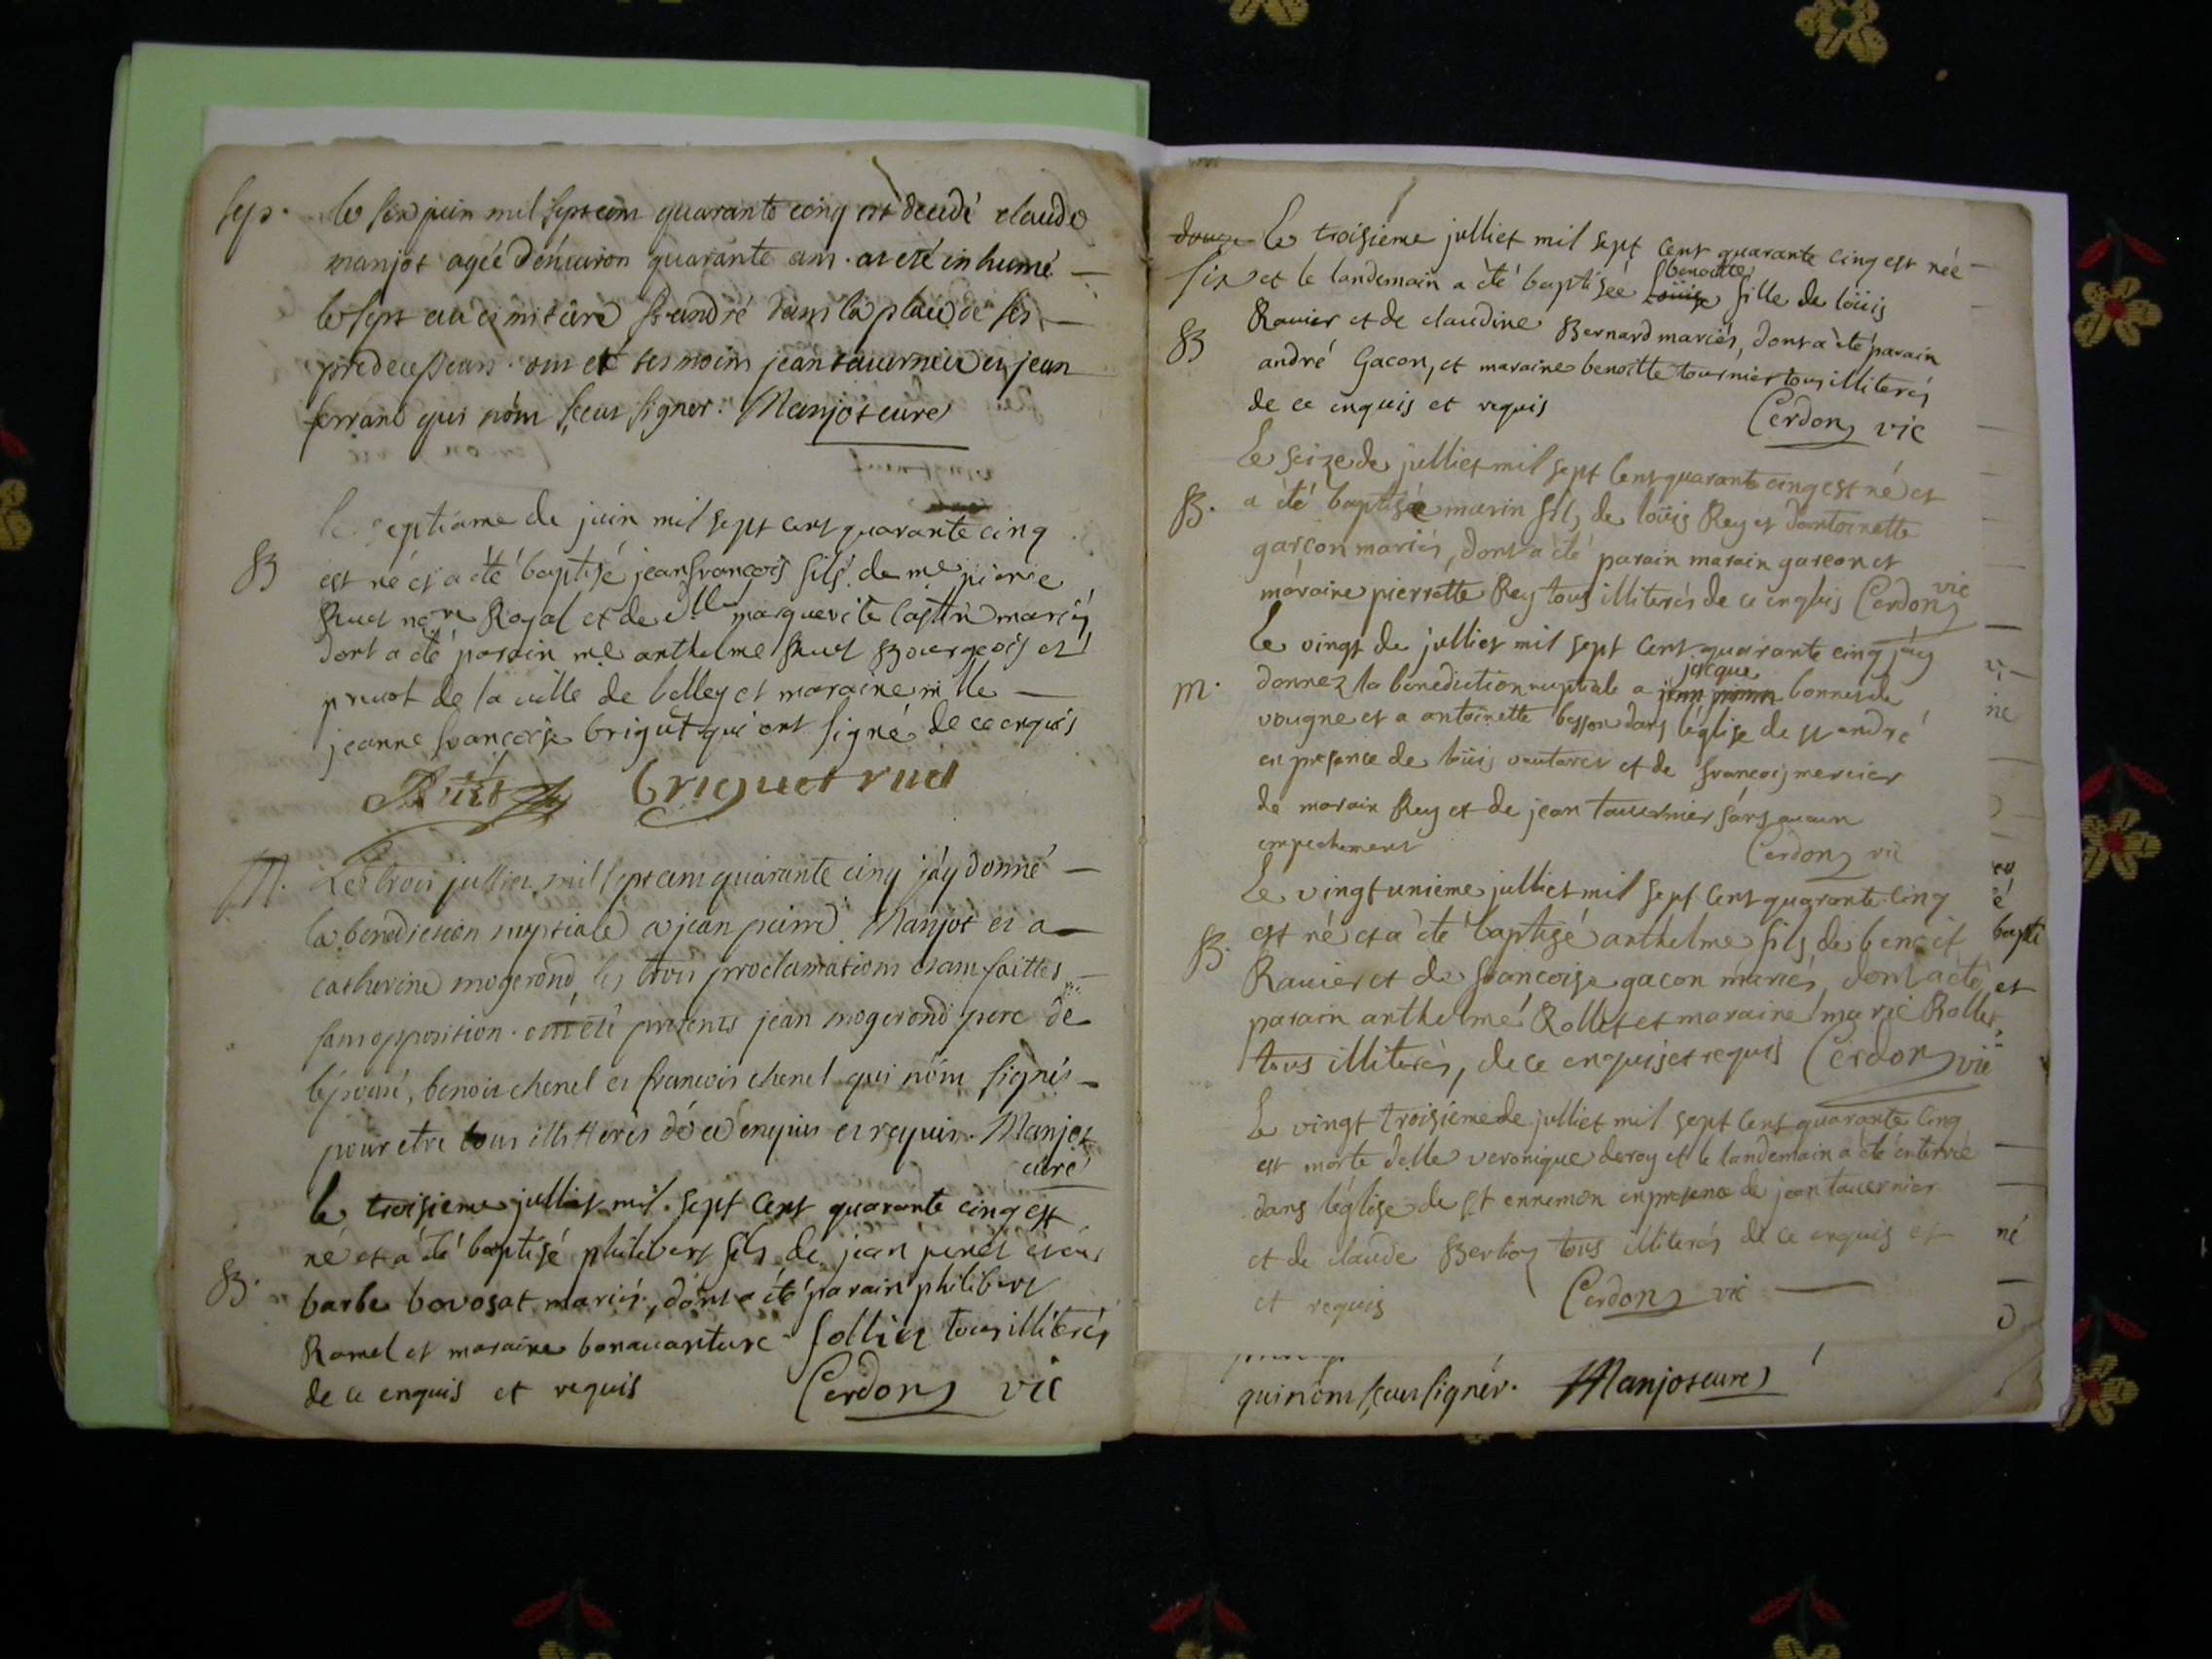 sep. le six juin mil sept cens quarante cinq est decedé claude
manjot agée dénuiron quarante ans. at eté inhumé
le sept au cimitiere st andré dans la place de ses
predecesseurs. ont eté tesmoins jean tauernier et jean
ferrand qui nóm sceus signer. Manjot curé
le septiame de juin mil sept cens quarante cinq
B est né et a été baptisé jean françois fils de me pierre
Ruet nore Royal et de dlle marguerite castin mariés
dont a été parain me anthelme Ruet Bourgeois et
preuot de la uille de belley et maraine mlle
jeanne françoise briguet qui ont signé de ce enquis
Ruet briguet ruet
M. Le trois julliet mil sept cens quarante cinq j'ay donné
la benediction nuptiale a jean pierre Manjot et a
catherine mogerond, les trois proclamations étant faittes
sans opposition. ont eté présents jean mogerond pere de
l'épouse, benoit chenel et francois chenel qui nóm signés
pour etre tous illitterés de ce enquis et requis. Manjot
curé
le troisieme julliet mil sept cens quarante cinq est
né et a été baptisé philibert fils de jean penet et de
B. barbe bovosat mariés, dont a été parain philibert
Ramel et maraine bonauanture sollier tous illiterés
de ce enquis et requis Cerdon vic
douze Le troisieme julliet mil sept cens quarante cinq est née
benoitte
six et le landemain a été baptisée Loüise fille de loüis
B Rauier et de claudine Bernard mariés, dont a été parain
andré Gacon, et maraine benoitte tournier tous illiterés
de ce enquis et requis Cerdon vic
Le seize de julliet mil sept cens quarante cinq est né et
B. a été baptisé marin fils de loüis Rey et d'antoinette
garçon mariés, dont a été parain marain garcon et
maraine pierrette Rey tous illiterés de ce enquis Cerdon vic
Le vingt de julliet mil sept cens quarante cinq j'ay
jacque
m. donnez la benediction nuptiale a bonnet de
vougne et a antoinette besson dans l'église de st andré
en presence de loüis vautaret et de françois mercier
de marain Rey et de jean tauernier sans aucun
empechement Cerdon vic
Le vingt unieme julliet mil sept cens quarante cinq
B. est né et a été baptizé anthelme fils de benoit
Rauier et de francoise gacon mariés, dont a été
parain anthelme Rollet et maraine marie Rollet
tous illiterés, de ce enquis et requis Cerdon vic
Le vingt troisieme de julliet mil sept cens quarante cinq
est morte delle veronique deroy et le landemain a été enterrée
dans l'église de st ennemon en presence de jean tauernier
et de claude Berlioz tous illiterés de ce enquis et
et requis Cerdon vic
qui nóm sceus signér. Manjot curé
né
bapti
et
né